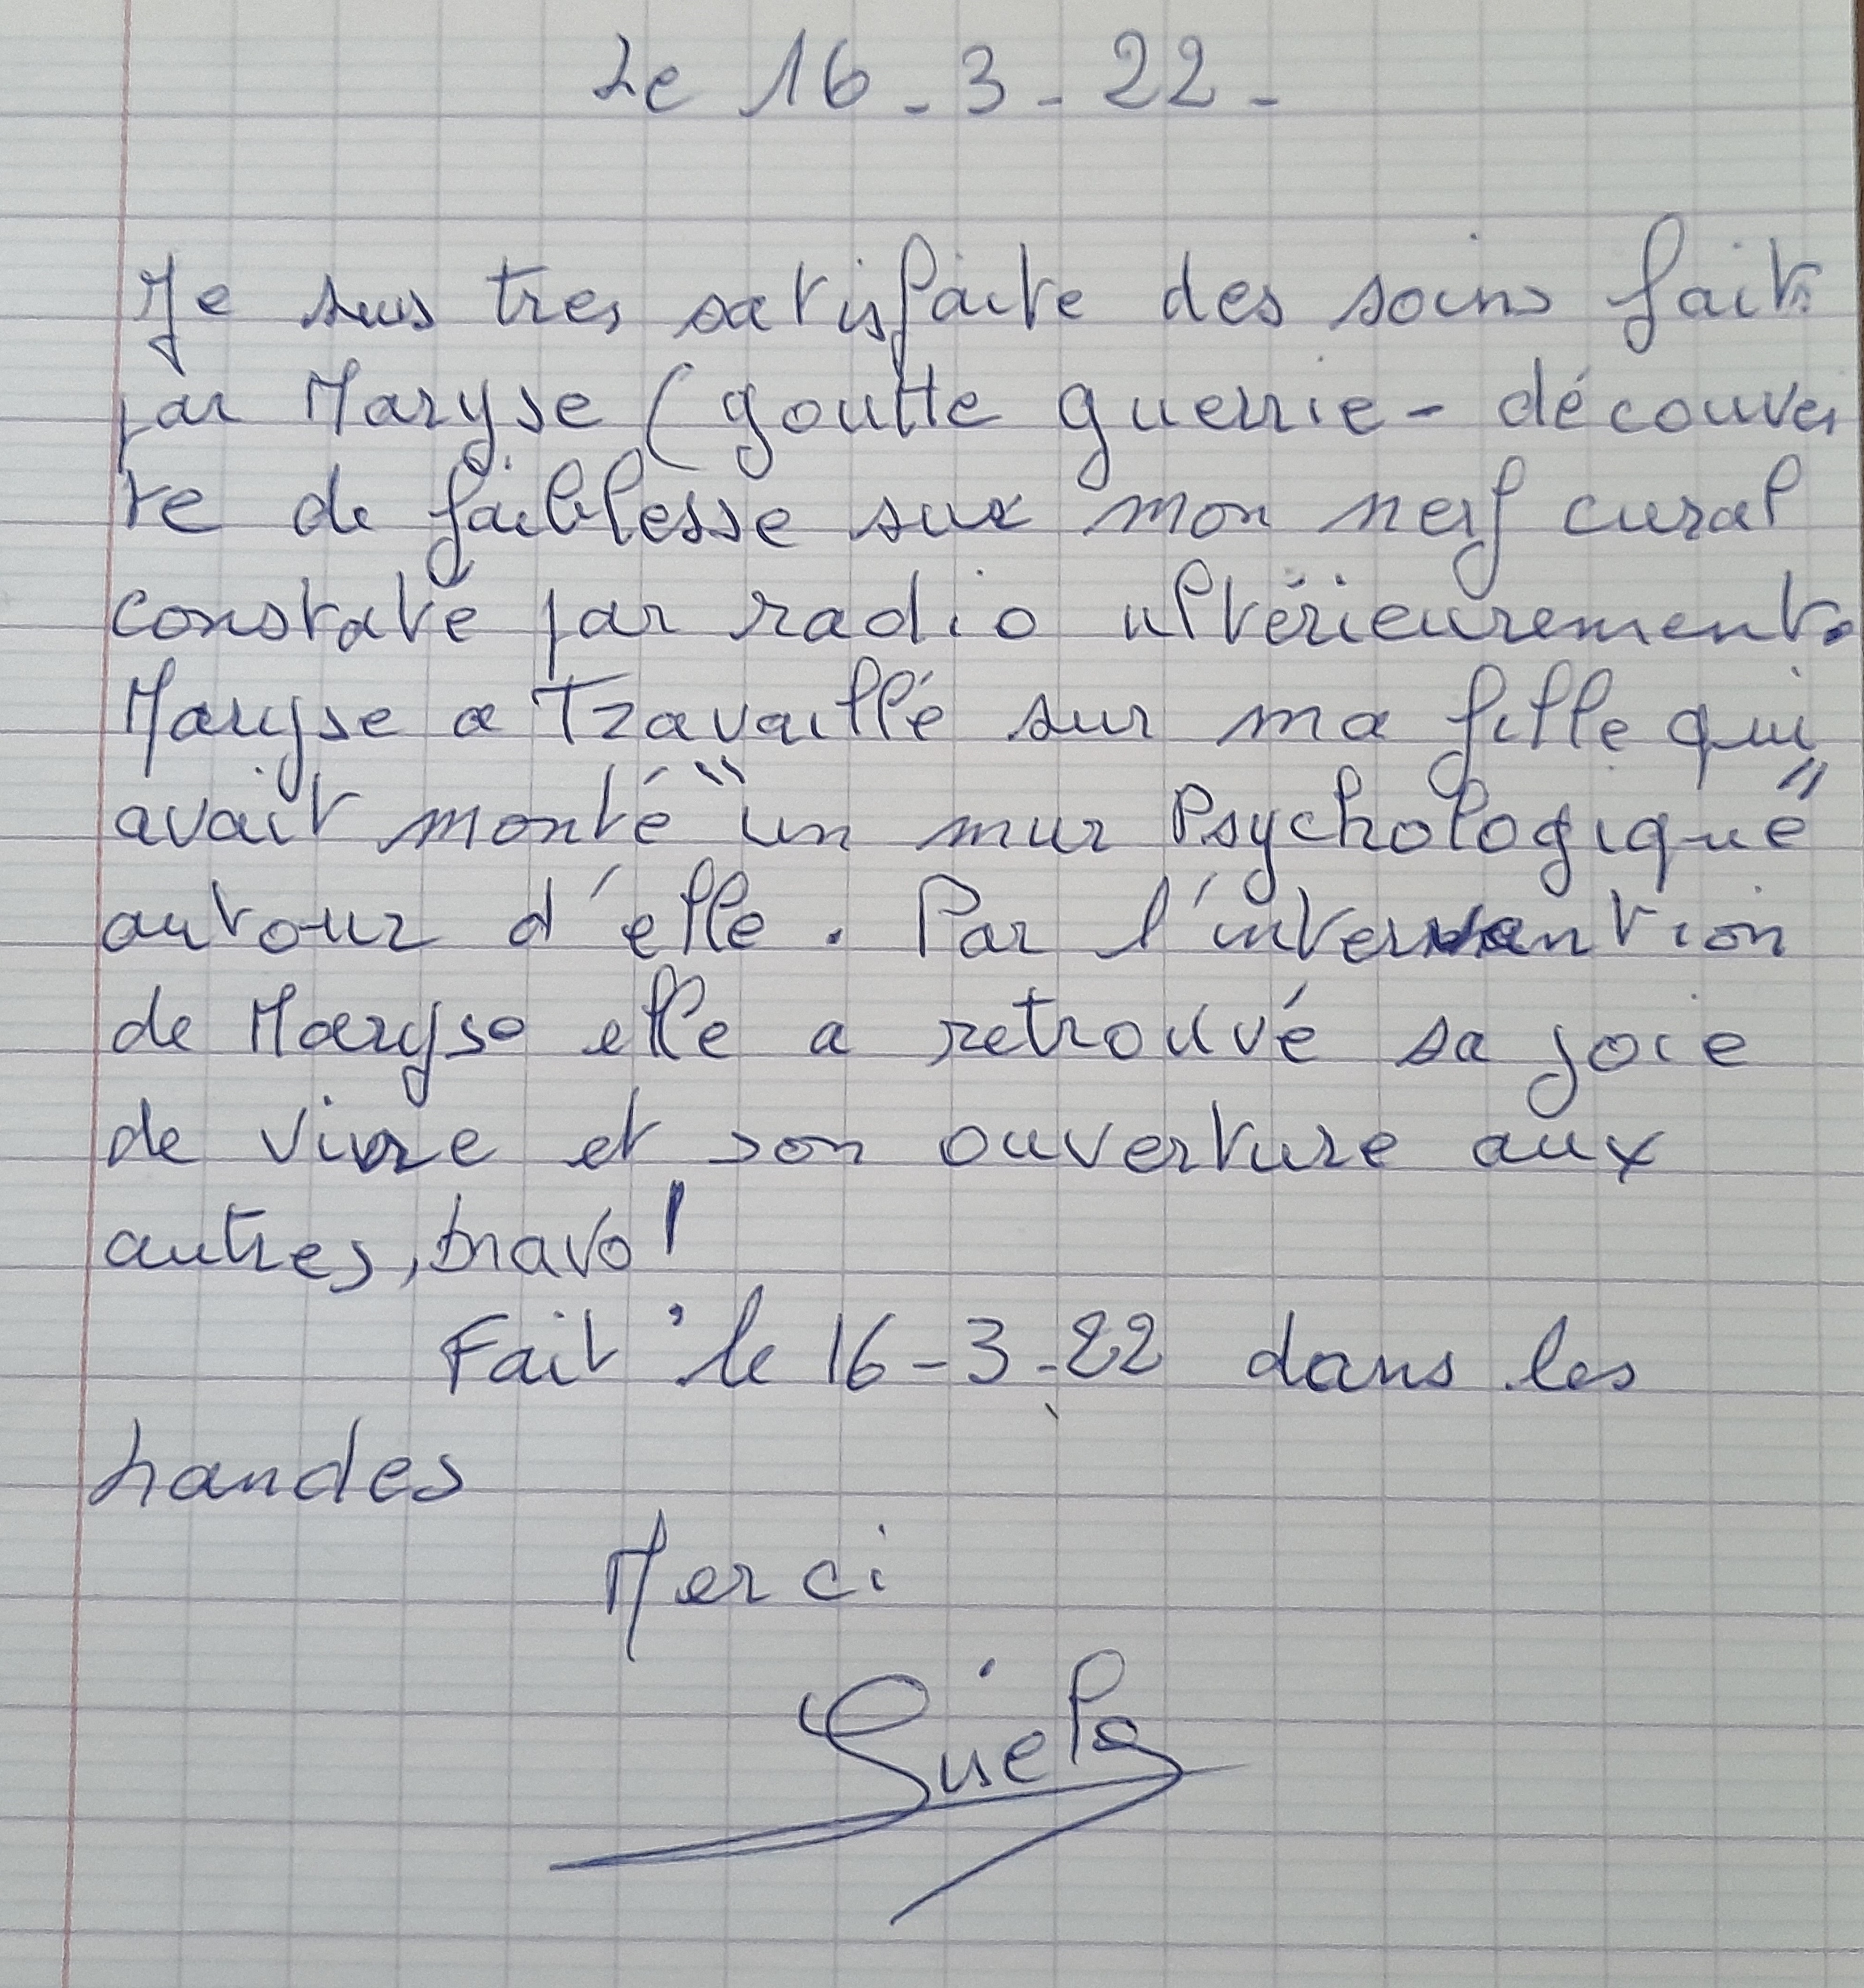 Le 16 - 3 - 22 -
Je suis tres satisfaite des soins faits
par Maryse (goutte guerrie - découver
te de faiblesse sur mon nerf cural
constaté par radio ultérieurement.
Maryse a Travaillé sur ma fille qui
avait monté "un mur Psychologique"
autour d'elle. Par l'intervention
de Maryse elle a retrouvé sa joie
de vivre et son ouverture aux
autres, bravo!
Fait le 16-3-22 dans les
Landes
Merci